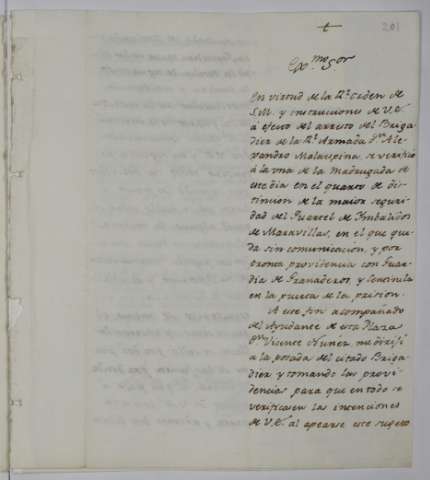 201
Exmo Sor
En virtud de la Rl Orden de
S.M. y instrucciones de V.E.
à efecto del arresto del Briga
dier de la Rl Armada Dn Ale
xandro Malaspina, se verificó
à la una de la Madrugada de
este dia en el quarto de dis
tincion de la maior seguri
dad del Quartel de Imbalidos
de Maravillas, en el que que
da sin comunicacion, y por
providencia con Guar
dia de Granaderos, y Centinela
en la puerta de la prision.
A este fin acompañado
del Ayudante de esta Plaza
Dn Vicente Nuñez me dirixi
a la posada del citado Briga
dier y tomando las provi
dencias para que en todo se
verificasen las intenciones
de V.E. al apearse este sugeto